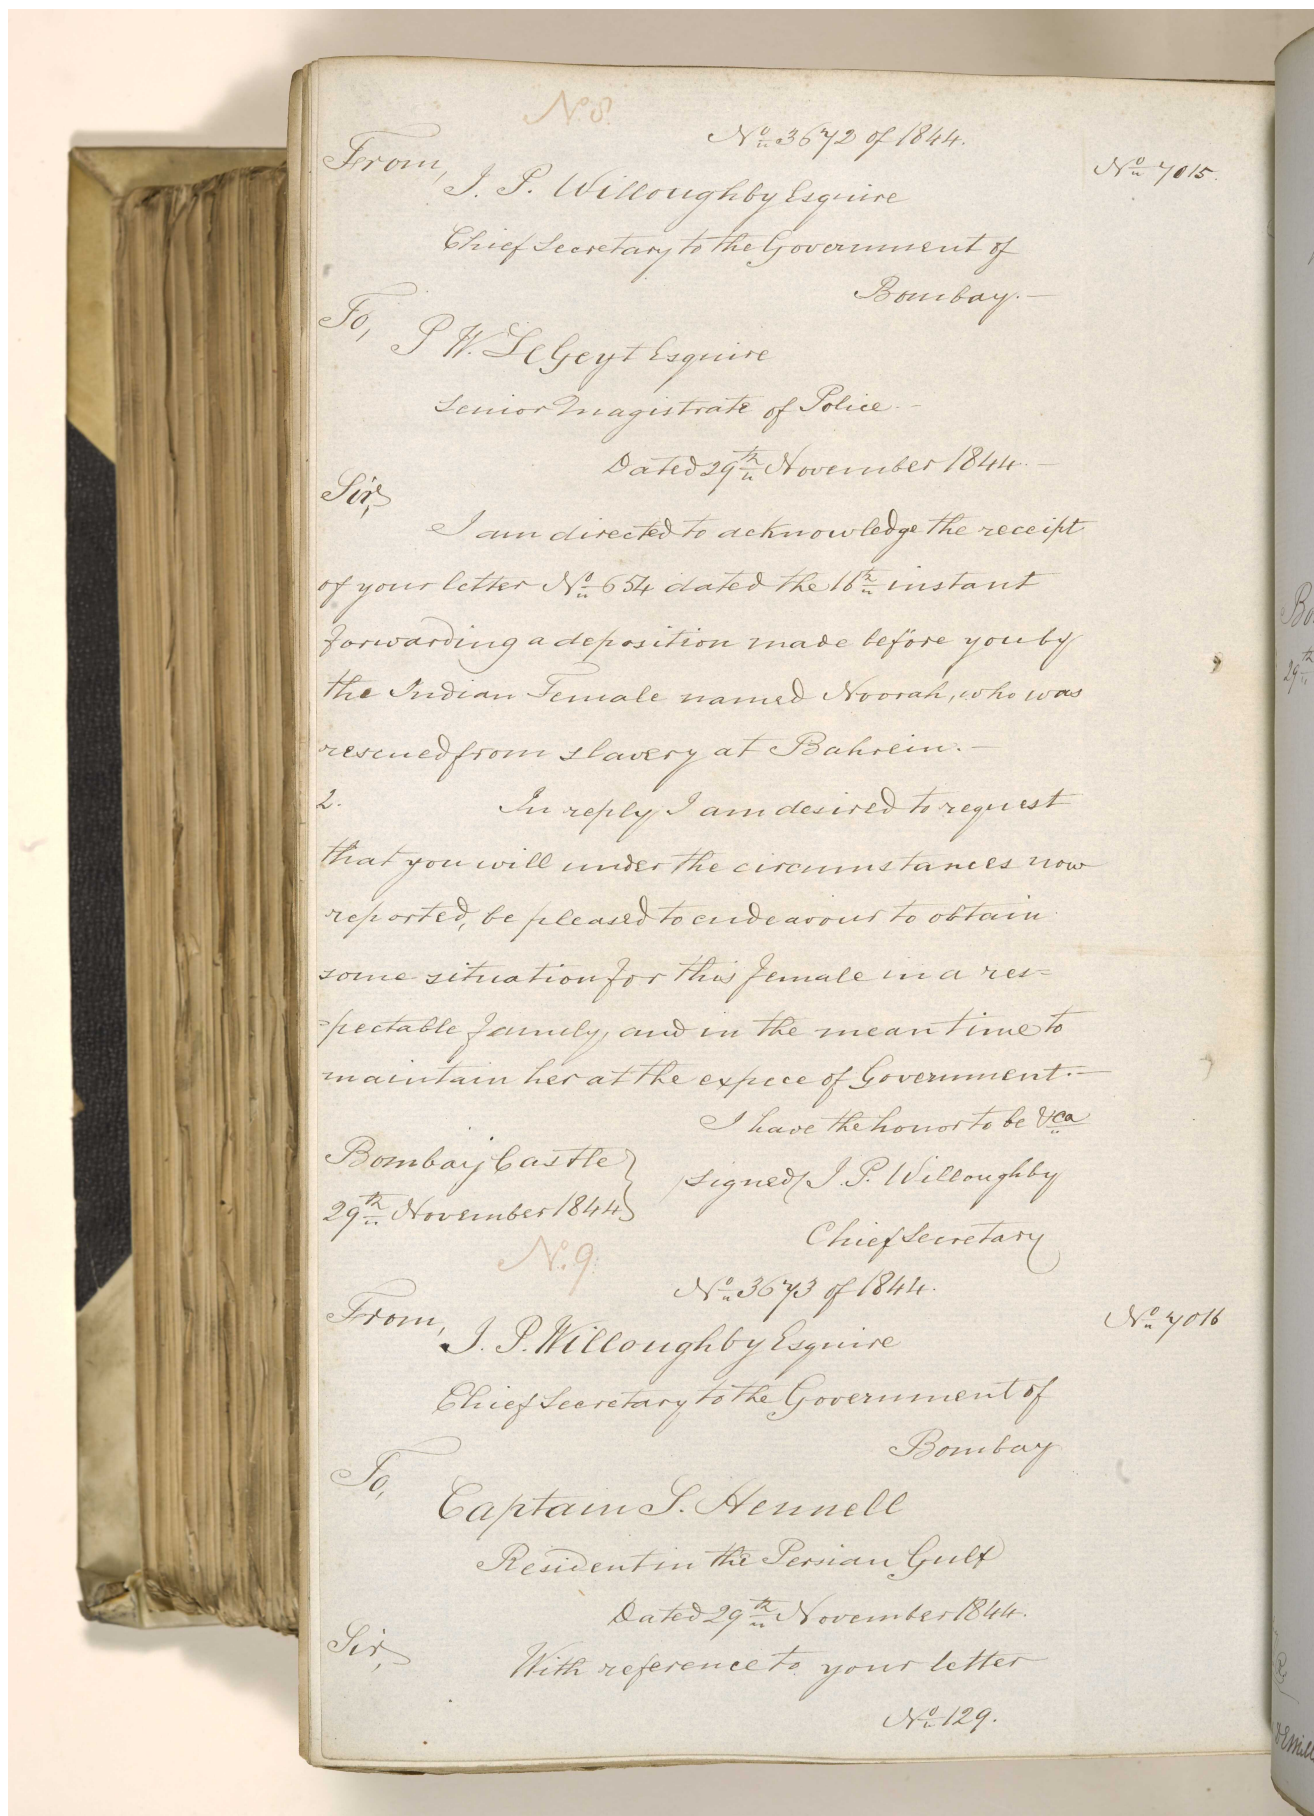 No. 8.
No. 3672 of 1844.
No. 7015.
From,
J. P. Willoughby Esquire
Chief Secretary to the Government of
Bombay.—
To,
P W. LeGeyt Esquire
Senior Magistrate of Police.—
Dated 29th November 1844.—
Sir,
I am directed to acknowledge the receipt
of your letter No. 654 dated the 16th instant
forwarding a deposition made before you by
the Indian Female named Noorah, who was
rescued from slavery at Bahrein.—
2. In reply I am desired to request
that you will under the circumstances now
reported, be pleased to endeavour to obtain
some situation for this female in a res=
=pectable family, and in the mean time to
maintain her at the expece of Government.—
I have the honor to be &ca
Bombay Castle
signed/ J. P. Willoughby
29th November 1844
Chief Secretary
No. 9.
No. 3673 of 1844.
No. 7016
From,
J. P. Willoughby Esquire
Chief Secretary to the Government of
Bombay
To,
Captain S. Hennell
Resident in the Persian Gulf
Dated 29th November 1844.
Sir,
With reference to your letter
No. 129.
29th